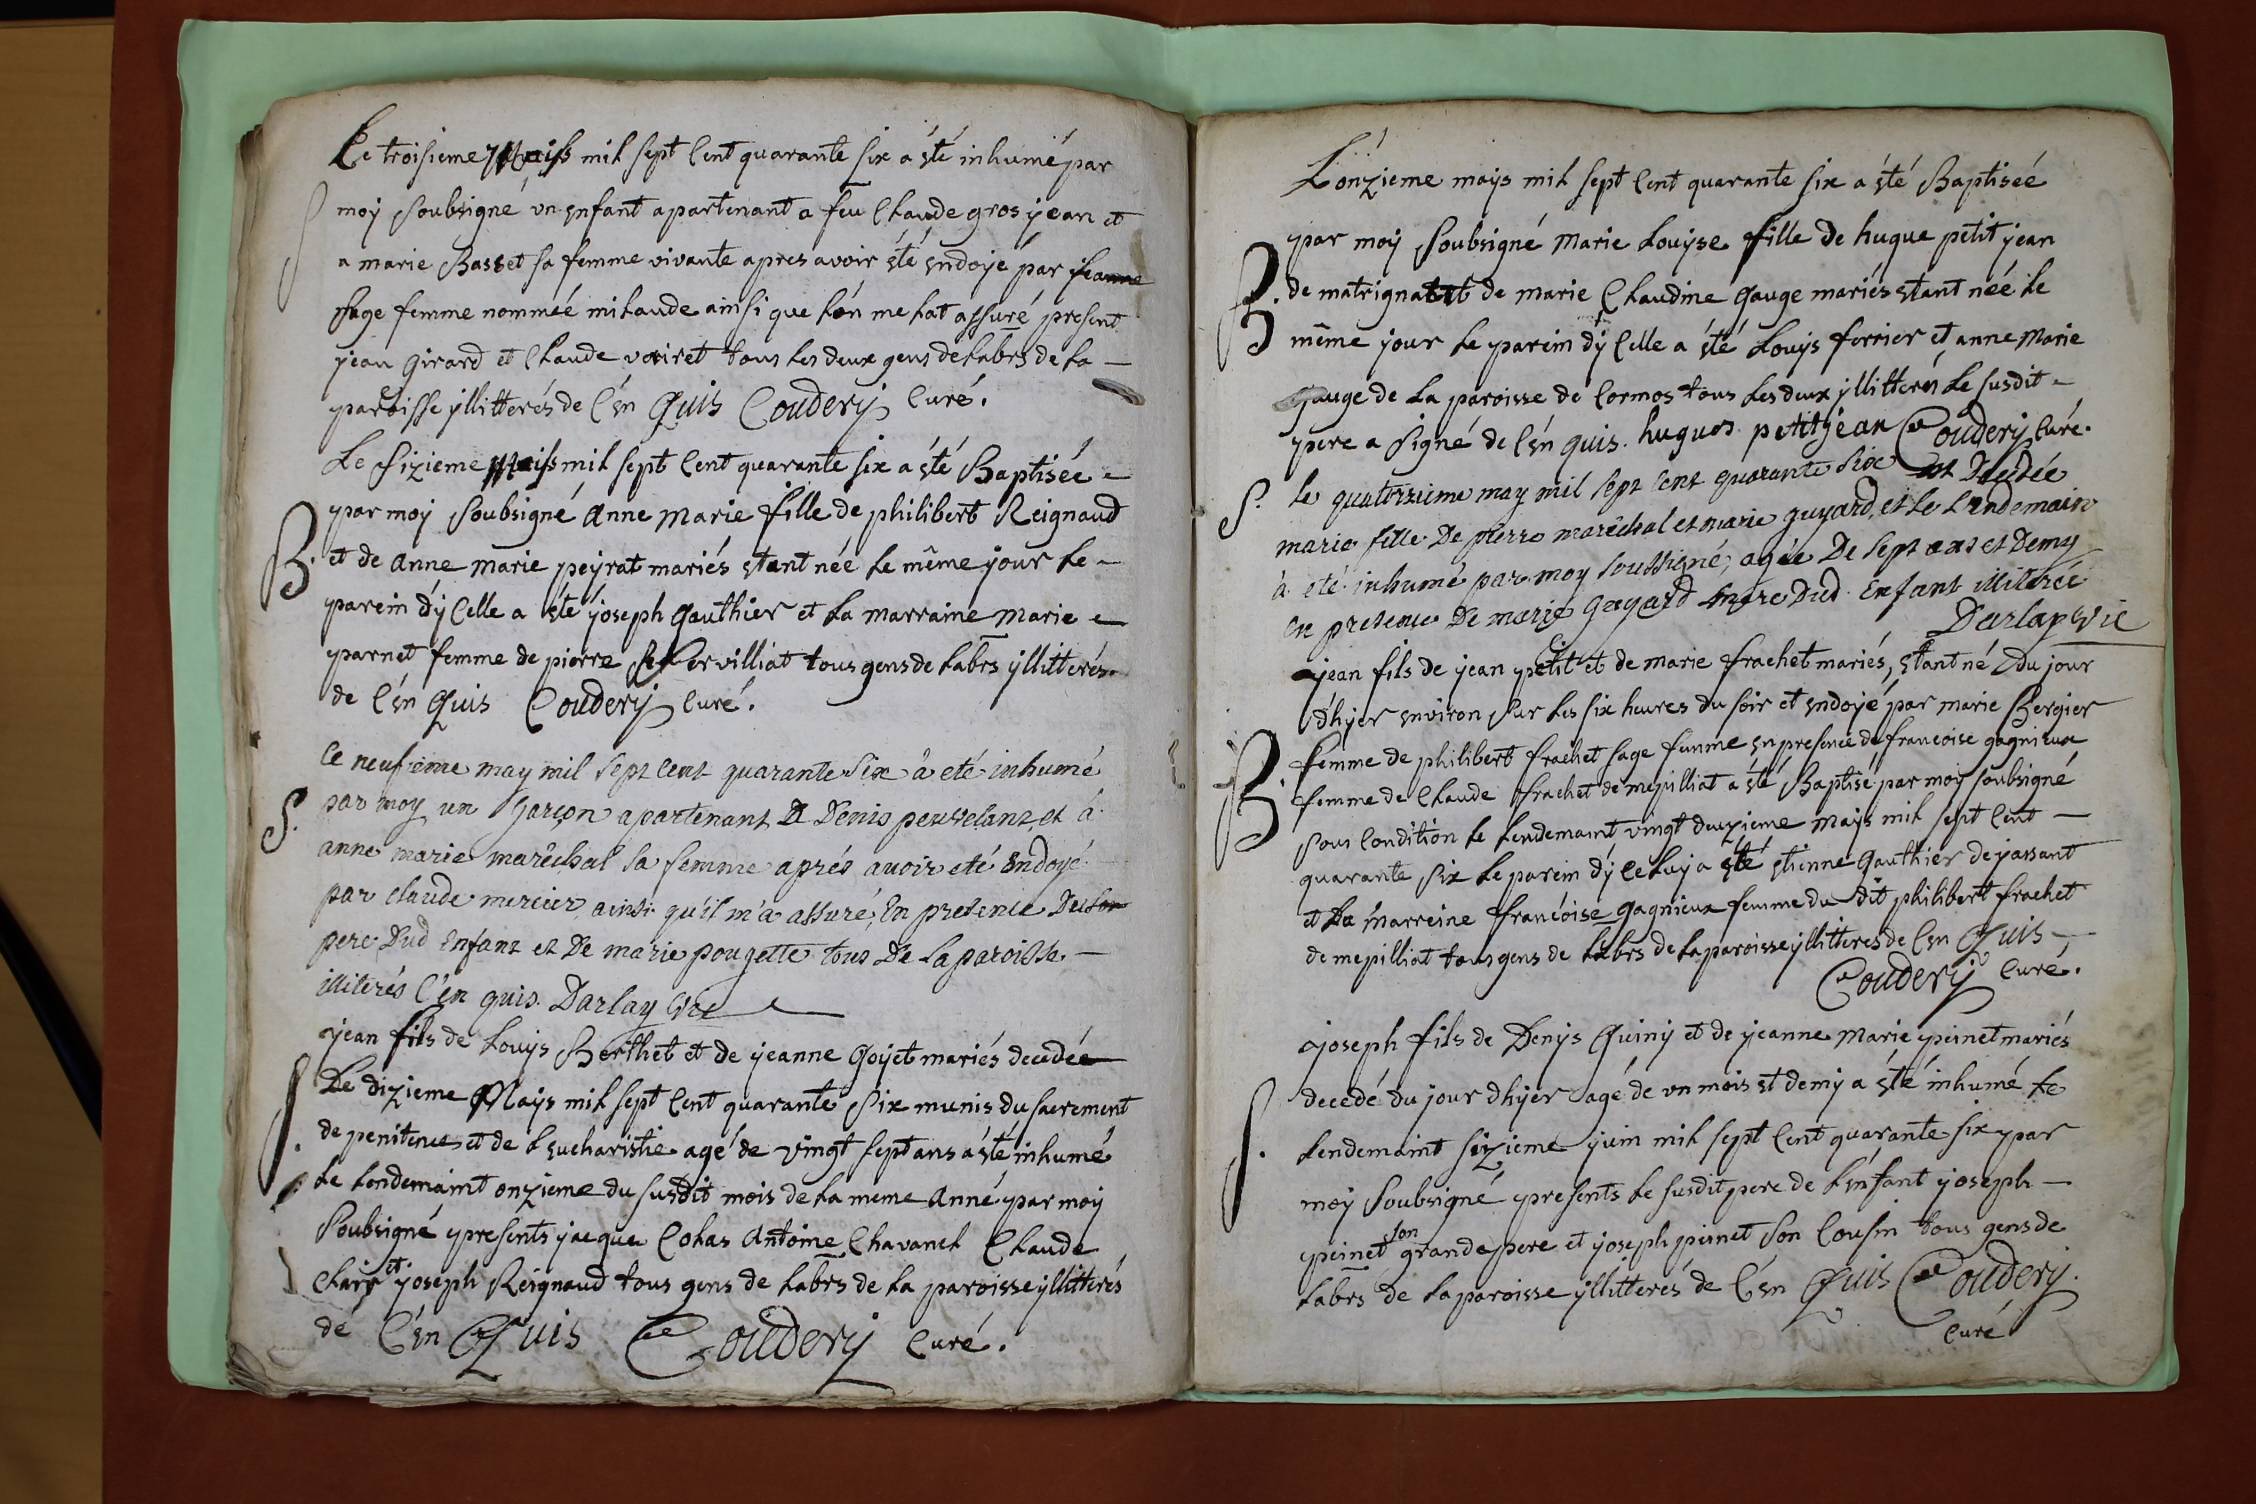 Le troisieme Maiss mil sept Cent quarante six a été inhumé par
S moy Soubsigné vn enfant apartenant a feu Claude gros jean et
a marie Basset sa femme vivante apres avoir été endoyé par jeanne
sage femme nommeé milaude ainsi que l'on me lat assuré present
jean Girard et Claude voiret tous les deux gens de labrs de la —
paroisse yllitterés de C'en Quis Couderij Curé.
Le sizieme Maiss mil sept Cent quarante six a été Baptiseé
B. par moy Soubsigné Anne Marie fille de philibert Reignaud
et de Anne Marie peyrat mariés etant née le même jour le
parein d'ijcelle a été joseph Gauthier et la marraine Marie
parnet femme de pierre Servilliat tous gens de labrs yllitterés
de C'en Quis Couderij Curé.
le neufieme may mil sept cent quarante six à eté inhumé
S. par moy un garçon apartenant A Denis et á
anne marie maréchal sa femme aprés avoir eté Endoyé
par claude mercier ainsi qu'il m'a assuré, En presence Du
pere Dud Enfant et De marie pougette tous De la paroisse —
illiterés C'en quis. Darlay Vic
jean fils de Louijs Berthet et de jeanne Goyet mariés decedée
S. Le dizieme Maijs mil sept Cent quarante six munis du sacrement
de penitence et de l'eucharistie agé de vingt sept ans a été inhumé
le lendemaint onzieme du susdit mois de la meme Anné par moy
Soubsigné presents jacque Colas Antoine Chavanel Claude
Clair et joseph Reignaud tous gens de labrs de la paroisse yllitterés
de C'en Quis Couderij Curé.
L'onzieme maijs mil sept Cent quarante six a été Baptiseé
B. par moy Soubsigné Marie Louijse fille de hugue petit jean
de matrignat et de marie Claudine Gauge mariés etant néé le
même jour le parein d'ijcelle a été Louijs ferrier et anne Marie
Gauge de la paroisse de Cormos tous les deux yllitterés le susdit
pere a signé de C'en quis. hugues petitjean Couderij Curé.
S. le quatorzieme may mil sept cent quarante six est Decedée
marie fille De pierre maréchal et marie guyard, et le Lendemain
à eté inhumé par moy soussigné, agée De sept ans et Demy
en presence De marie Guyard mere Dud Enfant illiterée
Darlay Vic
jean fils de jean petit et de marie frachet mariés, etant né du jour
d'hyer environ sur les six heures du soir et endoyé par marie Bergier
B. femme de philibert frachet sage femme en presence de francoise gagnieux
femme de Claude frachet de mepilliat a été Baptisé par moy soubsigné
sous Condition le lendemaint vingt deuzieme maijs mil sept Cent —
quarante six le parein d'ijceluy a été etienne Gauthier de jassant
et la marreine francoise gagnieux femme du dit philibert frachet
de mepilliat tous gens de labrs de la paroisse yllitterés de C'en Quis —
Couderij Curé.
joseph fils de Denijs Quinij et de jeanne Marie peinet mariés
decedé du jour d'hyer agé de vn mois et demij a été inhumé le
S. lendemaint sizieme juin mil sept Cent quarante six par
moy Soubsigné presents le susdit pere de l'enfant joseph —
peinet son grandepere et joseph peinet son Cousin tous gens de
labrs de la paroisse yllitterés de C'en Quis Couderij.
Curé